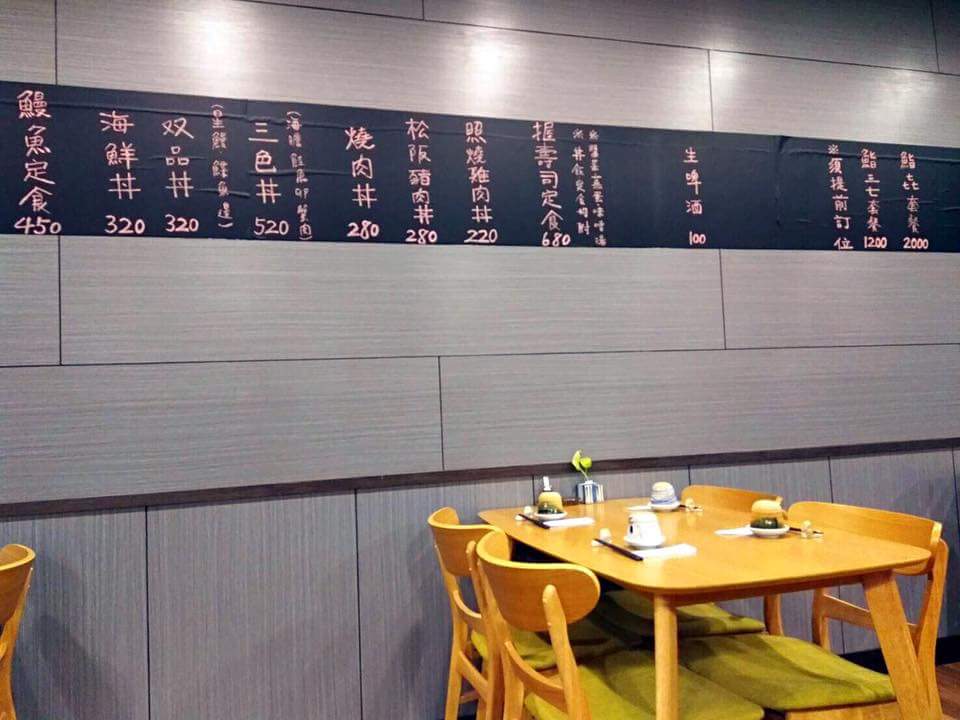 鰻魚定食 450
海鮮丼 320
双品丼 320
(星鰻 鰈魚邊)
三色丼 520
(海膽 鮭魚卵 蟹肉)
燒肉丼 280
松阪豬肉丼 280
照燒雞肉丼 220
握壽司定食 680
※丼飯定食均附
生啤酒 100
※須提前訂位
鮨三七套餐 1200
鮨㐂套餐 2000